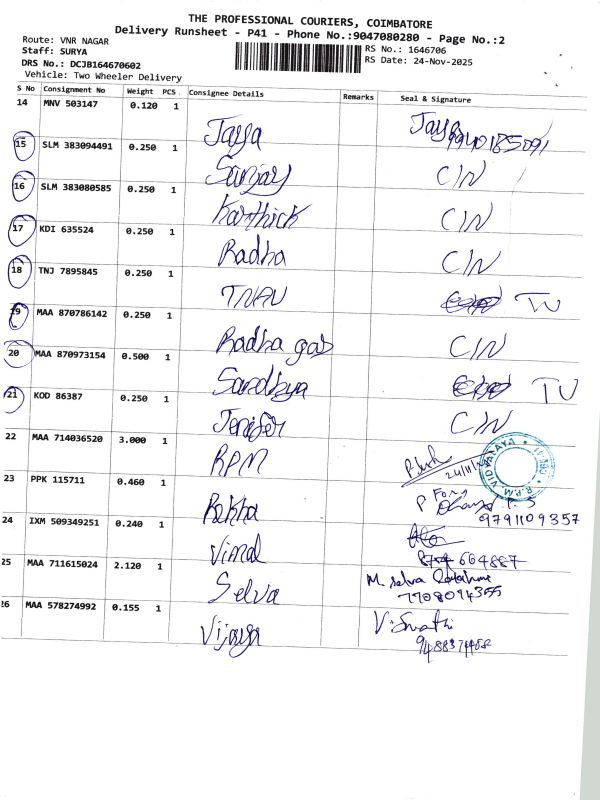 THE PROFESSIONAL COURIERS, COIMBATORE
Delivery Runsheet - P41 - Phone No.:9047080280 - Page No.:2
Route: VNR NAGAR
Staff: SURYA
RS No.: 1646706
DRS No.: DCJB164670602
RS Date: 24-Nov-2025
Vehicle: Two Wheeler Delivery
S No Consignment No Weight PCS Consignee Details Remarks Seal & Signature
14 MNV 503147 0.120 1
Jaya Jaya 9940185091
15 SLM 383094491 0.250 1
Sanjay C/N
16 SLM 383080585 0.250 1
Karthick C/N
17 KDI 635524 0.250 1
Radha C/N
18 TNJ 7895845 0.250 1
TNAU
19 MAA 870786142 0.250 1
Radha C/N
20 MAA 870973154 0.500 1
Sandhya
21 KOD 86387 0.250 1
Jenifer C/N
22 MAA 714036520 3.000 1
RPM 24/11/
R.P.M. VIDYALAYA
23 PPK 115711 0.460 1
Rekha 9791109357
24 IXM 509349251 0.240 1
Vimal 664887
25 MAA 711615024 2.120 1
Selva M. Selva
7708094355
26 MAA 578274992 0.155 1
Vijaya